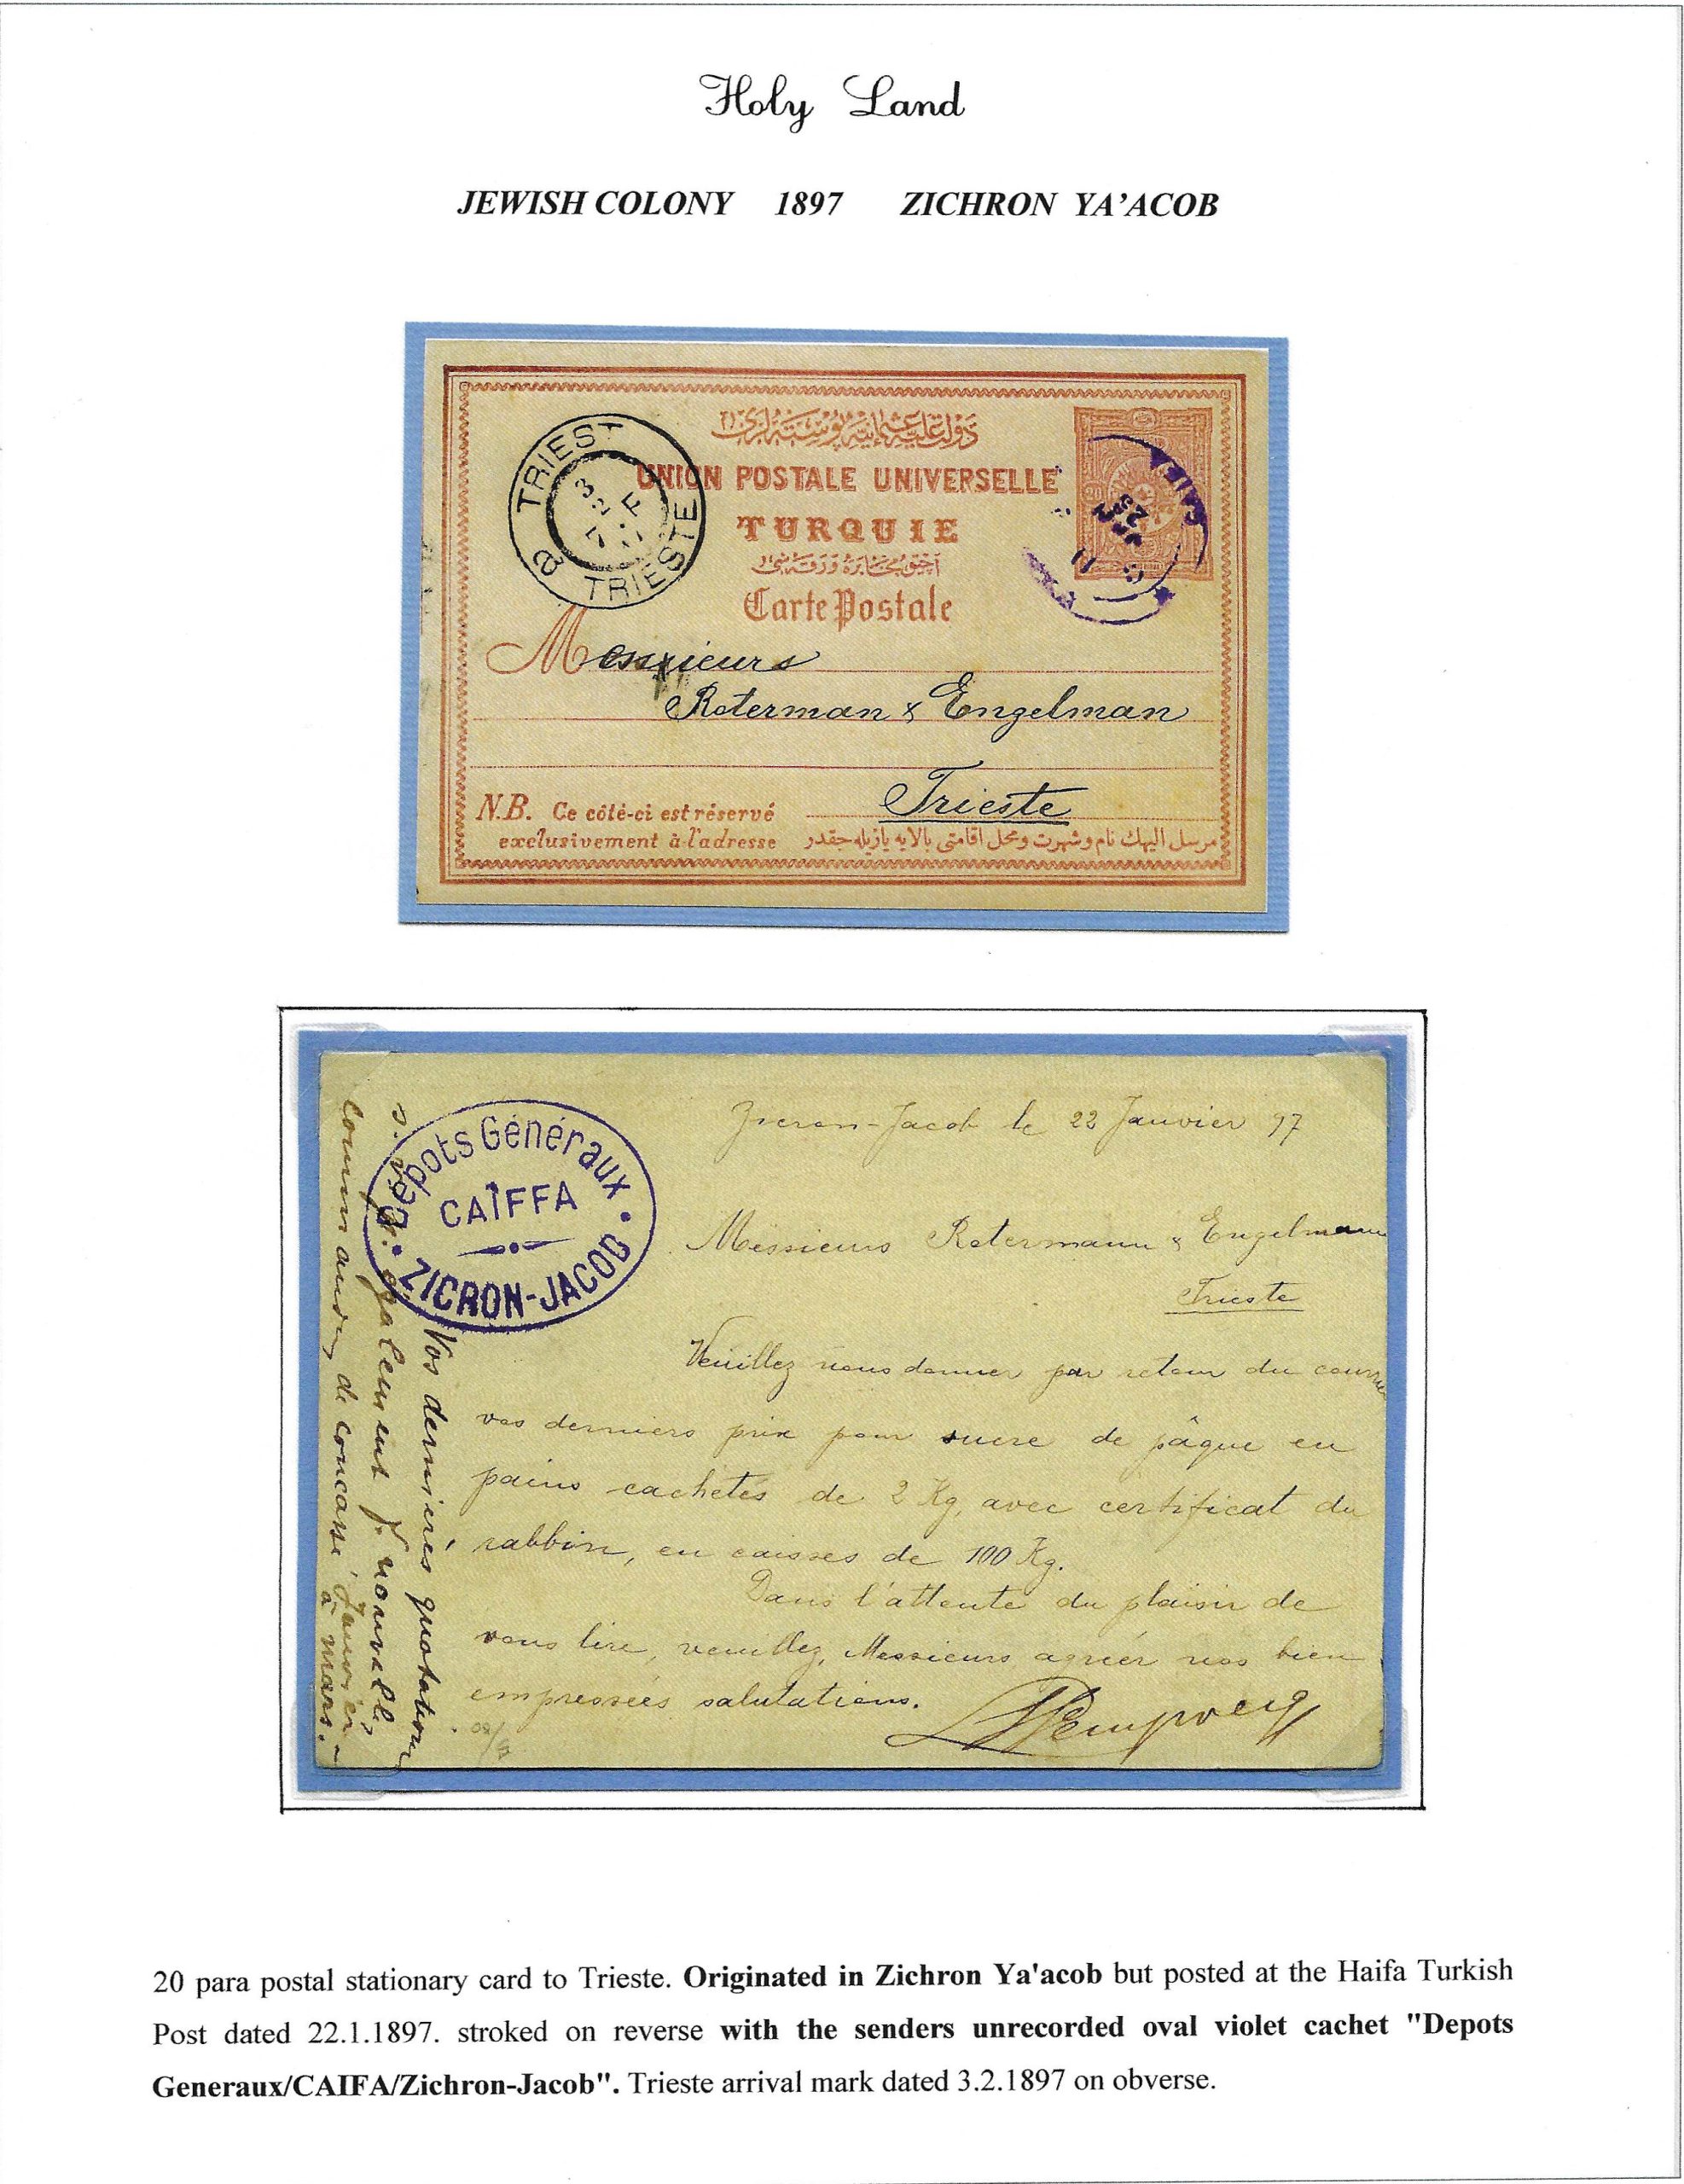 Holy Land
JEWISH COLONY 1897 ZICHRON YA'ACOB
دولت علیه عثمانیه پوسته لری
UNION POSTALE UNIVERSELLE
TURQUIE
Carte Postale
TRIEST
3 2
a TRIESTE
20
Messieurs
Roterman & Engelman
Trieste
N.B. Ce côté-ci est réservé
exclusivement à l'adresse
مرسل الیهك نام و شهرت و محل اقامتی بالایه یازیله جقدر
Dépots Généraux
CAÏFFA
ZICRON-JACOB
Zicron-Jacob le 22 Janvier 97
Messieurs Rotermann & Engelmann
Trieste
Veuillez nous donner par retour du courrier
vos derniers prix pour sucre de pâque en
pains cachetés de 2 Kg, avec certificat du
rabbin, en caisses de 100 Kg.
Dans l'attente du plaisir de
vous lire, veuillez, Messieurs agréer nos bien
empressées salutations.
Vos dernières quotations
s. v. p. également p. nouvelle
de concassé, Janvier
à mars.-
20 para postal stationary card to Trieste. Originated in Zichron Ya'acob but posted at the Haifa Turkish
Post dated 22.1.1897. stroked on reverse with the senders unrecorded oval violet cachet "Depots
Generaux/CAIFA/Zichron-Jacob". Trieste arrival mark dated 3.2.1897 on obverse.